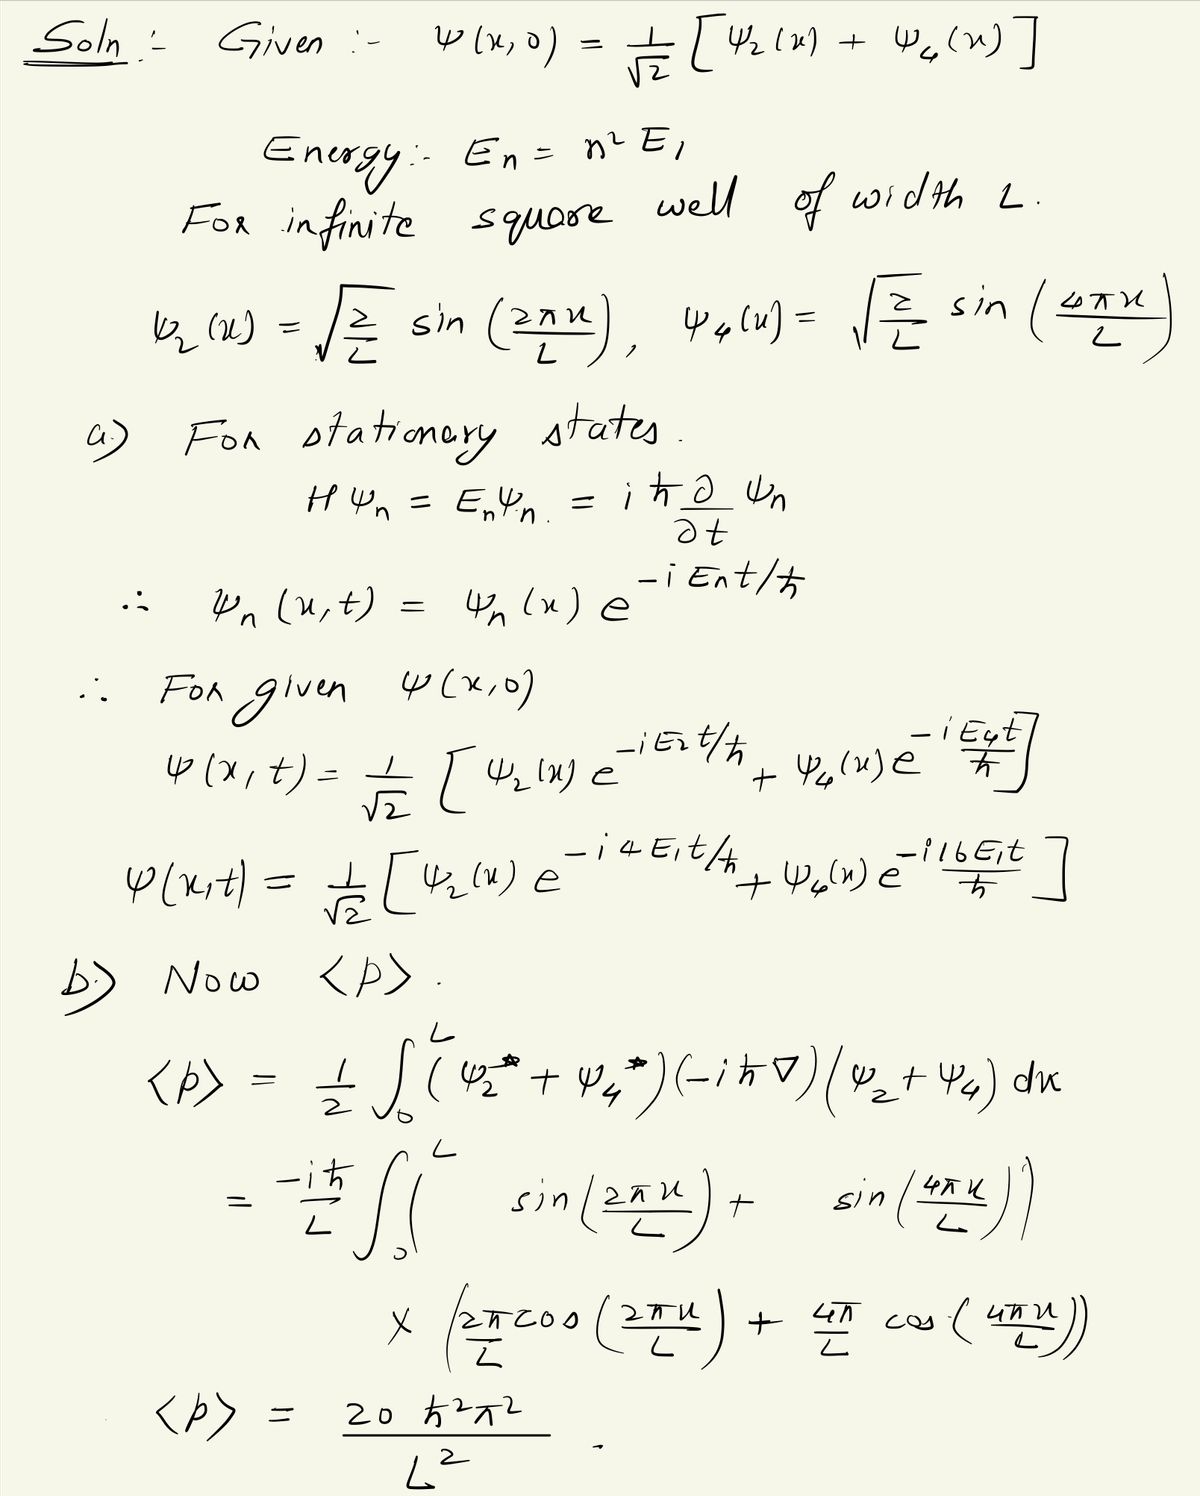 Soln :- Given :- ψ(x, 0) = 1/√2 [ψ₂(x) + ψ₄(x)]
Energy:- Eₙ = n² E₁
For infinite square well of width L.
ψ₂(x) = √(2/L) sin (2πx/L), ψ₄(x) = √(2/L) sin (4πx/L)
a) For stationary states.
Hψₙ = Eₙψₙ. = iħ ∂/∂t ψₙ
∴ ψₙ(x,t) = ψₙ(x) e^(-iEₙt/ħ)
∴ For given ψ(x,0)
ψ(x,t) = 1/√2 [ψ₂(x) e^(-iE₂t/ħ) + ψ₄(x) e^(-iE₄t/ħ)]
ψ(x,t) = 1/√2 [ψ₂(x) e^(-i4E₁t/ħ) + ψ₄(x) e^(-i16E₁t/ħ)]
b) Now <p>.
<p> = 1/2 ∫₀^L (ψ₂* + ψ₄*)(-iħ∇)(ψ₂ + ψ₄) dx
= -iħ/L ∫₀^L ( sin(2πx/L) + sin(4πx/L))
× (2π/L cos(2πx/L) + 4π/L cos(4πx/L))
<p> = 20 ħ²π²/L² .